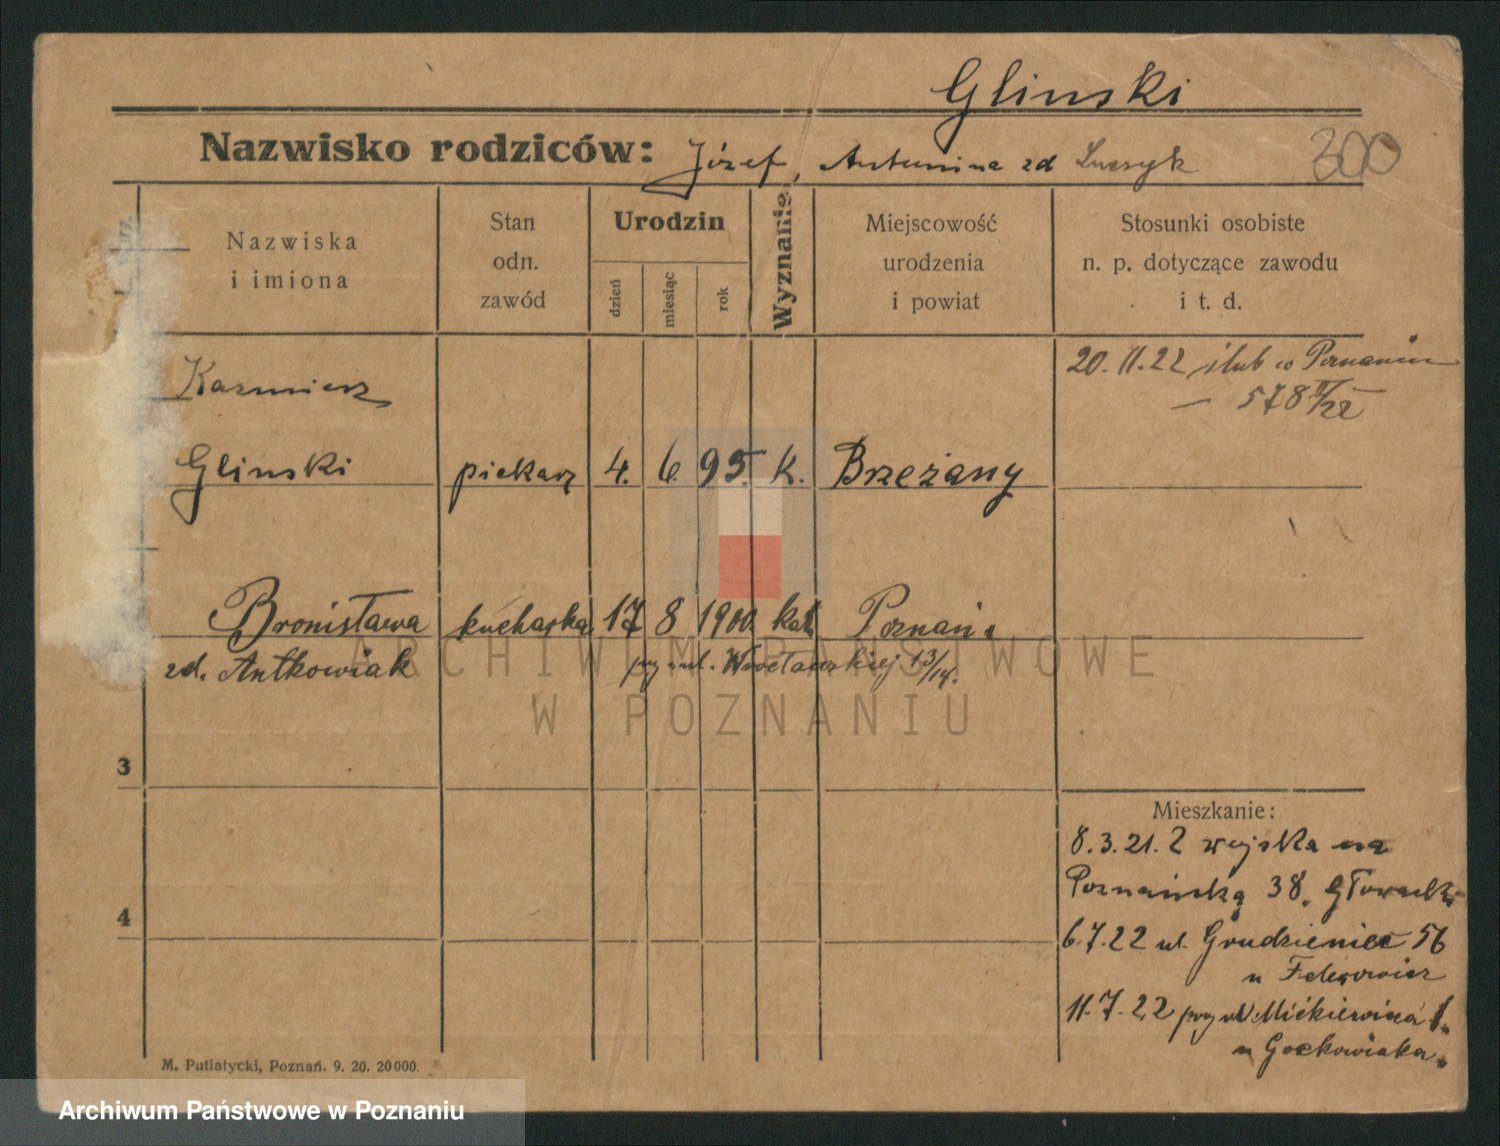 Glinski
Nazwisko rodziców: Józef, Antonina zd
300
Nazwiska i imiona
Stan odn. zawód
Urodzin
dzień
miesiąc
rok
Wyznanie
Miejscowość urodzenia i powiat
Stosunki osobiste n. p. dotyczące zawodu i t. d.
Kazmierz
20. 11. 22 ślub w Poznaniu
— 578 II/22
Glinski piekarz 4. 6. 95. k. Brzeżany
Bronisława kucharka 17 8 1900 kat Poznań
zd. Antkowiak przy ul. Wrocławskiej 13/14.
ARCHIWUM PAŃSTWOWE
W POZNANIU
3
Mieszkanie:
8.3.21. Z wojska na
Poznańską 38.
4
6.7.22 ul. Grudzieniec 56
u
11.7.22 przy ul. Mićkiewicza 1.
u Gockowiaka.
M. Putiatycki, Poznań. 9. 20. 20000.
Archiwum Państwowe w Poznaniu